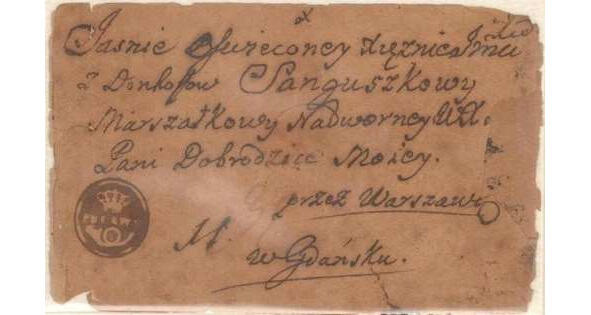 Jaśnie Oświeconey Xiężnie Jmci
z Denhofow Sanguszkowy
Marszałkowy Nadworney WXL.
Pani Dobrodzice Moiey.
przez Warszawę
w Gdańsku.